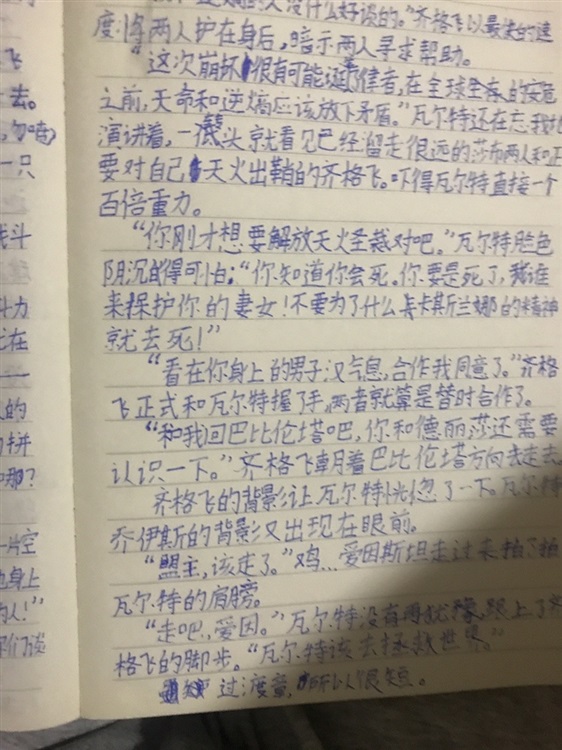 飞
去。
勿啃)
一只
战斗
斗力
在
——
的
拼
哪?
片空
身上
的人!"
没什么好谈的。"齐格飞以最快的速
度将两人护在身后,暗示两人寻求帮助。
"这次崩坏很有可能诞律者,在全球生存的安危
之前,天命和逆熵应该放下矛盾。"瓦尔特还在忘我地
演讲着,一抬头就看见已经溜走很远的莎布两人和正
要对自己天火出鞘的齐格飞。吓得瓦尔特直接一个
百倍重力。
"你刚才想要解放天火圣裁对吧。"瓦尔特脸色
阴沉的得可怕:"你知道你会死。你要是死了,谁
来保护你的妻女!不要为了什么卡斯兰娜的精神
就去死!"
"看在你身上的男子汉气息,合作我同意了。"齐格
飞正式和瓦尔特握了手,两者就算是暂时合作了。
"和我回巴比伦塔吧,你和德丽莎还需要
认识一下。"齐格飞朝着巴比伦塔方向走去。
齐格飞的背影让瓦尔特恍忽了一下。瓦尔特
乔伊斯的背影又出现在眼前。
"盟主,该走了。"鸡…爱因斯坦走过来拍了拍
瓦尔特的肩膀。
"走吧,爱因。"瓦尔特没有再犹豫,跟上了齐
格飞的脚步。"瓦尔特该去拯救世界。"
过渡章,所以很短。